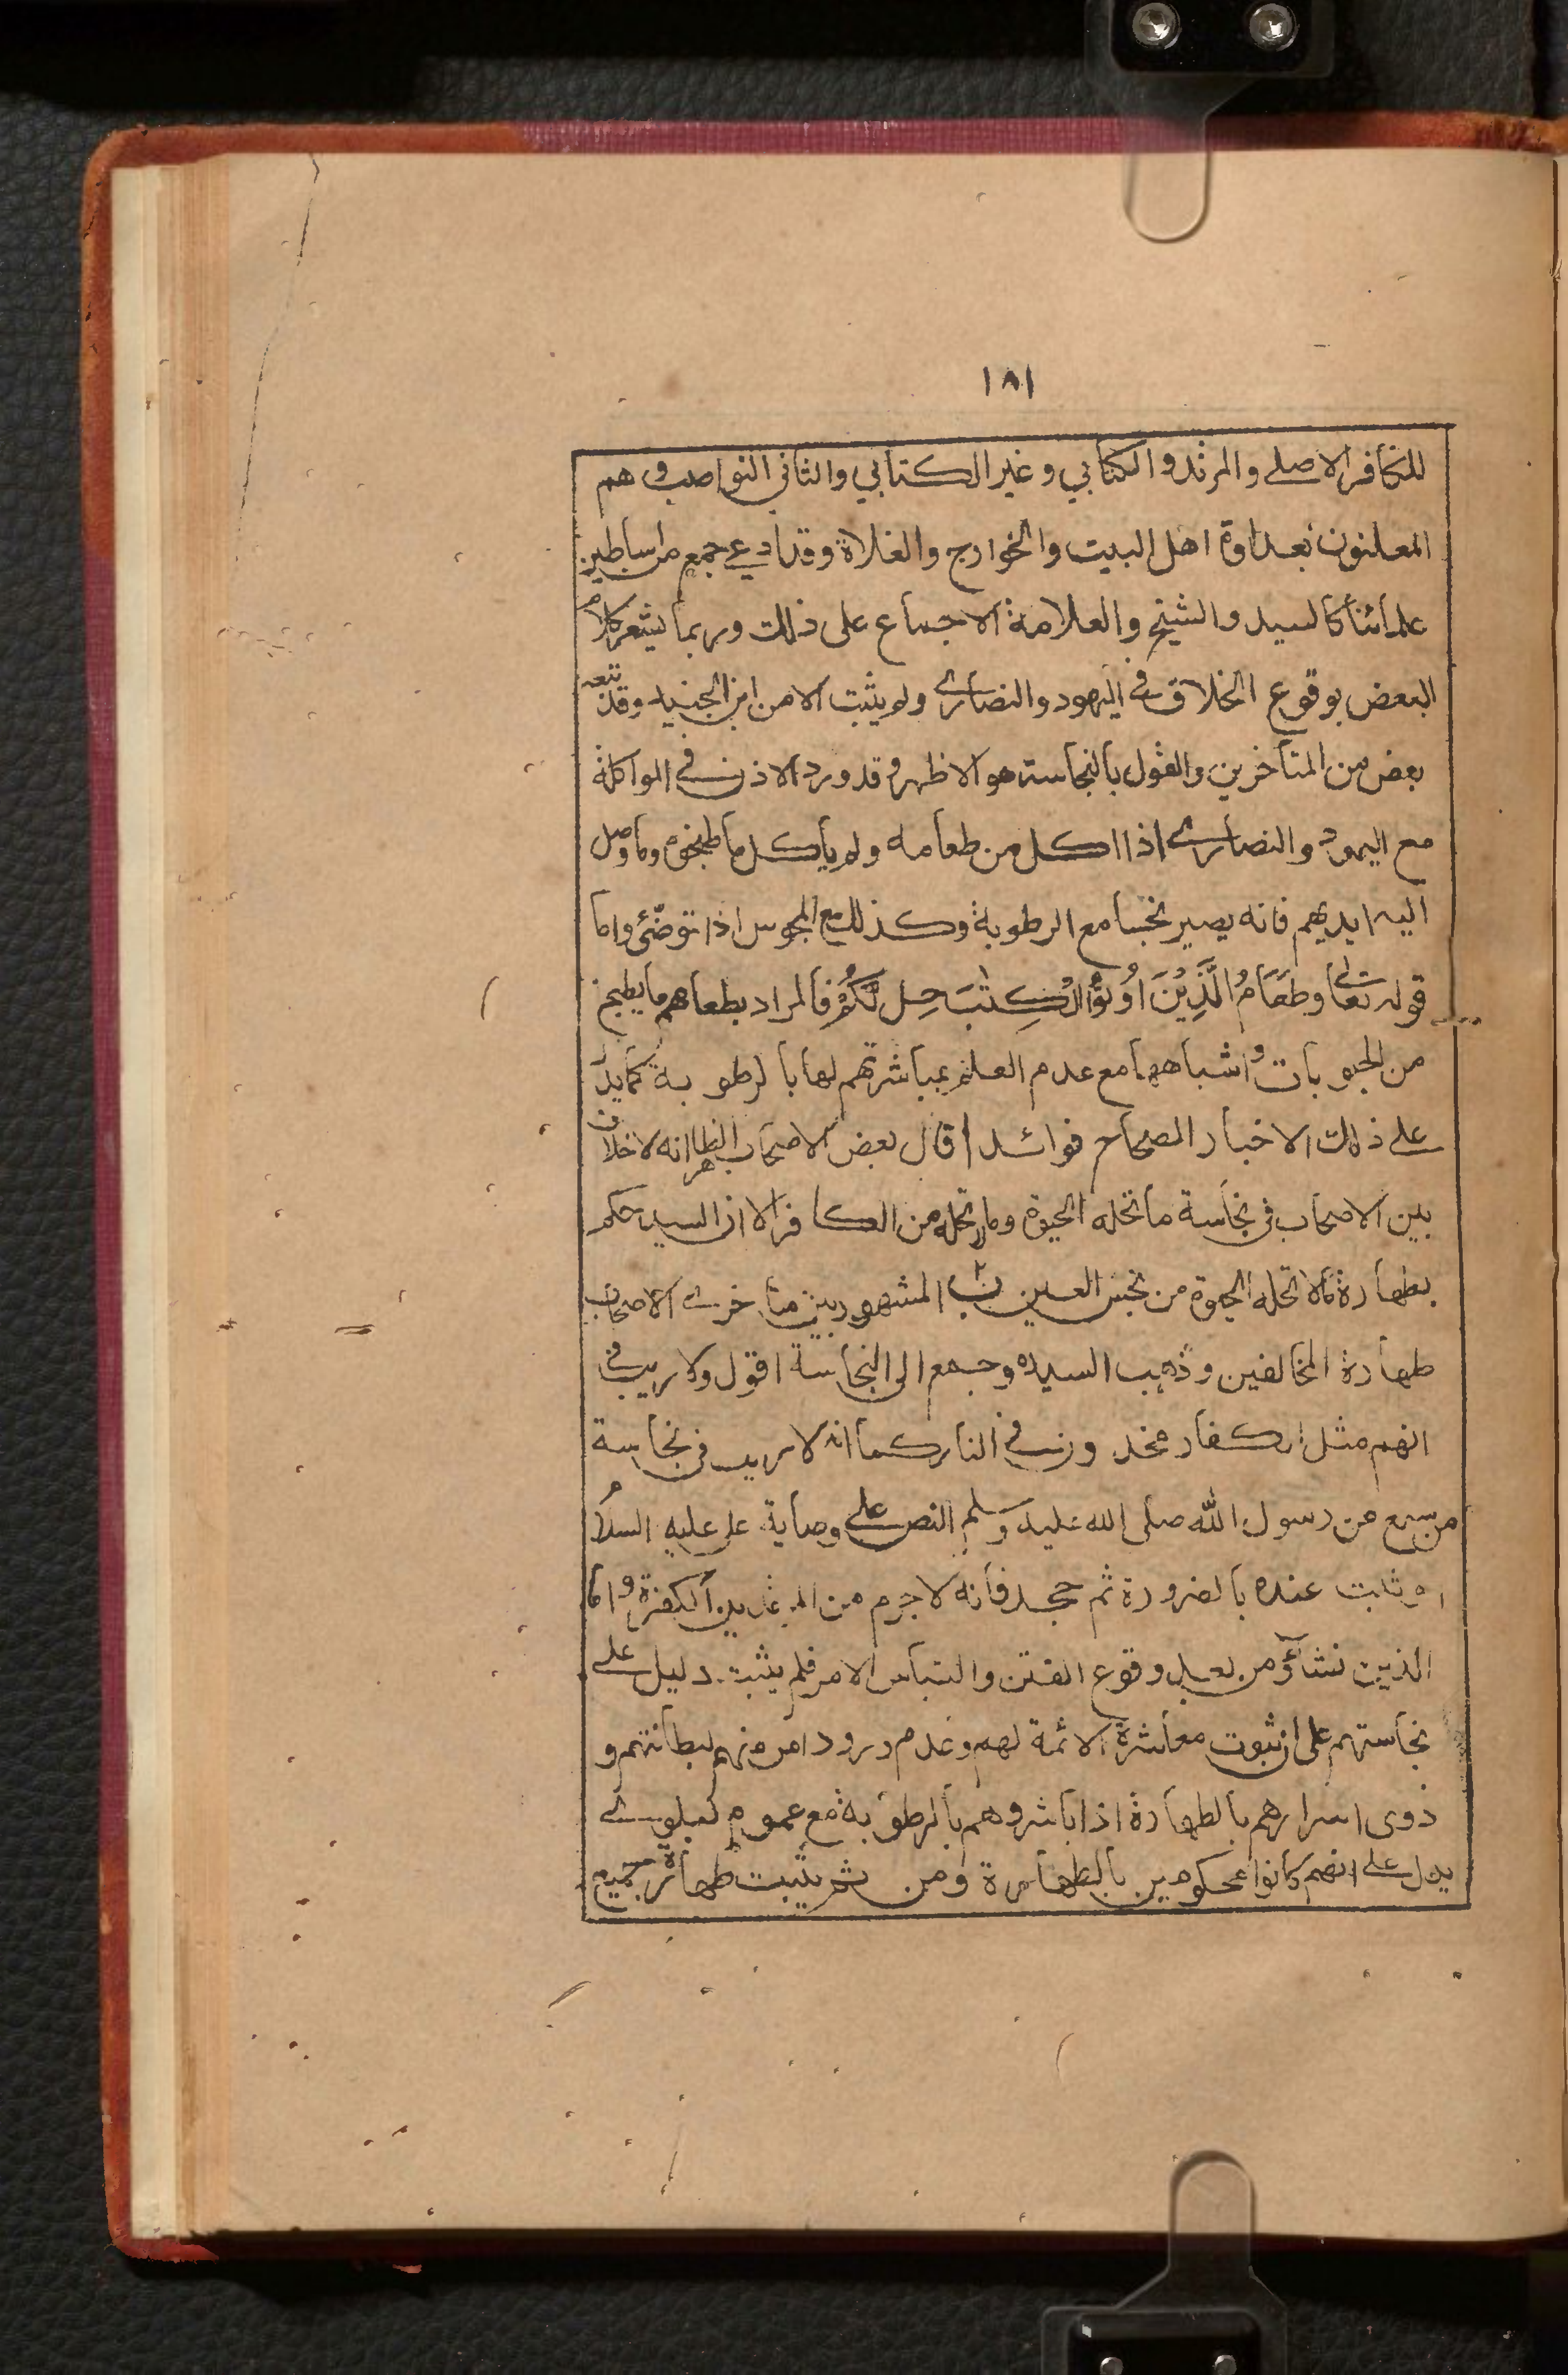 ١٨١
للكافر الاصلے والمرتد والكتابي وغير الكتابي والثاني النواصب و هم
المعلنون بعداوة اهل البيت والخوارج والغلاة وقد ادعے جمع من اساطين
علمائنا كالسيد والشيخ والعلامة الاجماع على ذلك وربما يشعر كلام
البعض بوقوع الخلاف في اليهود والنصارى ولم يثبت الا من ابن الجنيد وقد تبعه
بعض من المتأخرين والقول بالنجاسة هو الاظهر وقد ورد الاذن في المواكلة
مع اليهود والنصارى اذا اكل من طعامه ولم يأكل ما طبخوه وما وصل
اليه ايديهم فانه يصير نجسا مع الرطوبة وكذلك مع المجوس اذا توضّئ واما
قوله تعالى وطَعَامُ الَّذِيْنَ اُوْتُوْا الْكِتٰبَ حِل لَّكُمْ فالمراد بطعامهم ما يطبخ
من الحبوبات و اشباهها مع عدم العلم بمباشرتهم لها بالرطوبة كما يدل
علے ذلك الاخبار الصحاح فوائد ا قال بعض الاصحاب الظاهر انه لا خلاف
بين الاصحاب في نجاسة ما تحله الحيوة وما لا تحله من الكافر الا ان السيد حكم
بطهارة ما لا تحله الحيوة من نجس العين ب ٢ المشهور بين متأخرے الاصحاب
طهارة المخالفين وذهب السيد وجمع الى النجاسة اقول ولا ريب في
انهم مثل الكفار مخلدون في النار كما انه لا ريب في نجاسة
من سمع من رسول الله صلى الله عليه وسلم النص على وصاية على عليه السلام
او ثبت عنده بالضرورة ثم جحد فانه لا جرم من المرتدين الكفرة و اما
الذين نشأؤ من بعد وقوع الفتن والتباس الامر فلم يثبت دليل علے
نجاستهم على ان ثبوت معاشرة الائمة لهم وعدم ورود امر منهم لبطانتهم و
ذوى اسرارهم بالطهارة اذا باشروهم بالرطوبة مع عموم البلوے
يدل علے انهم كانوا محكومين بالطهارة ومن ثم يثبت طهارة جميع